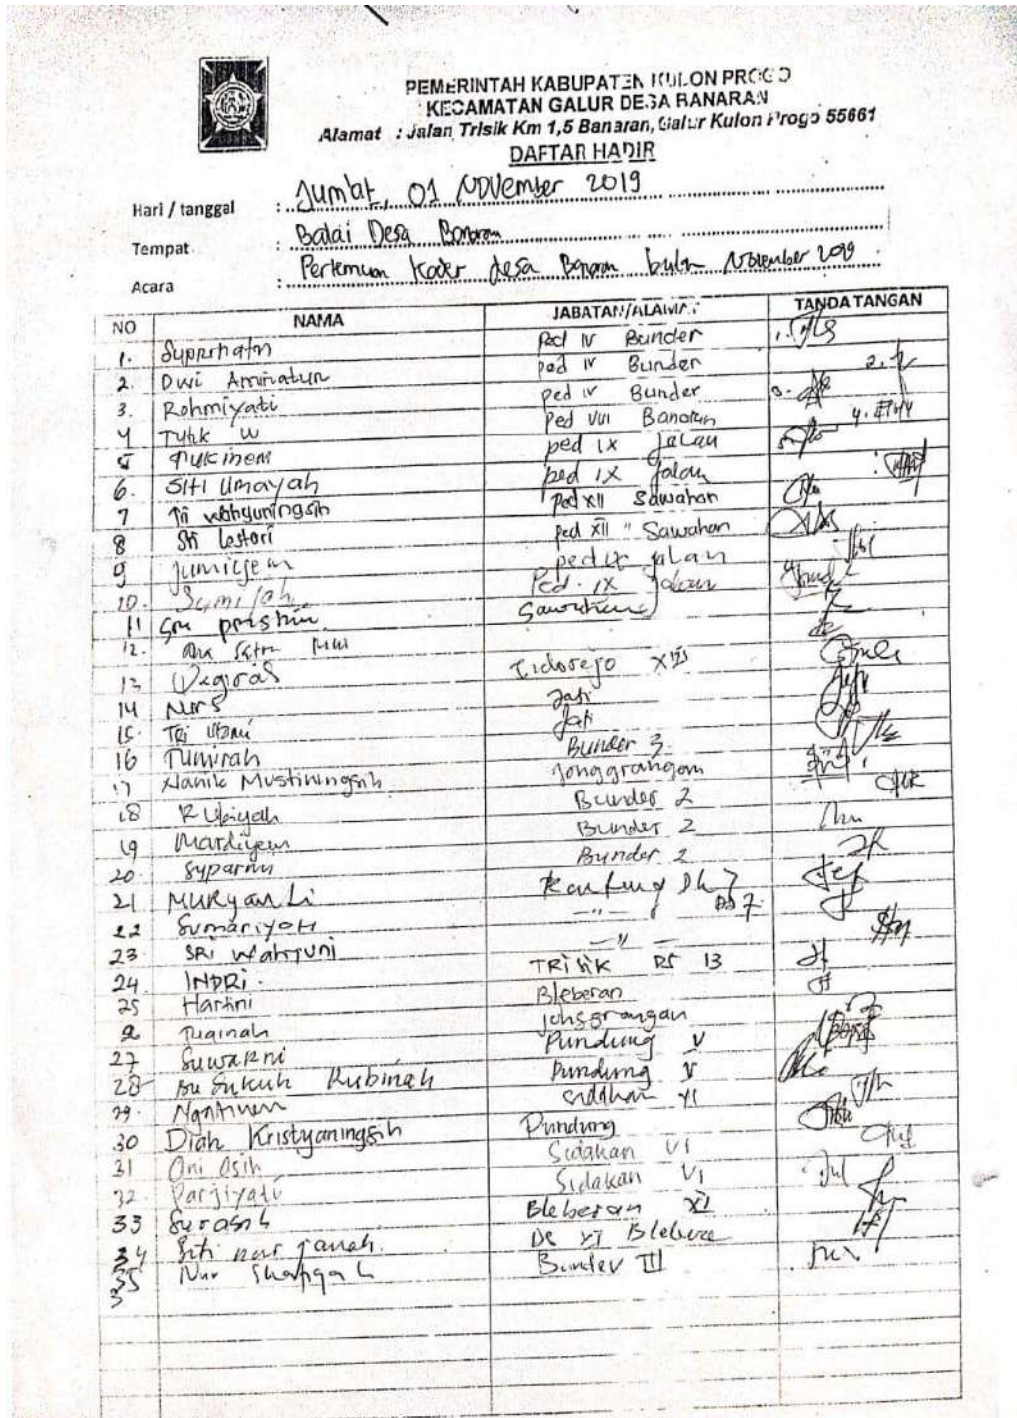 PEMERINTAH KABUPATEN KULON PROGO
KECAMATAN GALUR DESA BANARAN
Alamat : Jalan Trisik Km 1,5 Banaran, Galur Kulon Progo 55661
DAFTAR HADIR
Hari / tanggal : Jum'at, 01 November 2019
Tempat : Balai Desa Banaran
Acara : Pertemuan Kader desa Banaran bulan November 2019
NO NAMA JABATAN/ALAMAT TANDA TANGAN
1. Suprihatin Ped IV Bunder
2. Dwi Aminatun ped IV Bunder 2.
3. Rohmiyati ped IV Bunder 3.
4 Tutik W Ped VIII Banaran 4.
5 Tukinem ped IX Jalan
6. Siti Umayah ped IX Jalan
7 Tri wahyuningsih Ped XII Sawahan
8 Sri Lestari ped XII " Sawahan
9 Jumiyem ped IX jalan
10. Sumilah Ped. IX Jalan
11 Sri
12.
13 Sidorejo XIII
14 Nur S Jati
15. Tri Utami Jati
16 Tumirah Bunder 3
17 Nanik Mustiningsih Jonggrangan
18 Rubiyah Bunder 2
19 Mardiyem Bunder 2
20. Suparmi Bunder 2
21 MURyanti
22 Sumariyah - " -
23. SRI WAHYUNI - " -
24. INDRI. TRISIK 13
25 Hartini Bleberan
Tuginah
27 SuwaRni Pundung V
28 Bu Sukuh Rubinah Pundung V
29. Ngatinem VI
30 Diah Kristyaningsih Pundung
31 Oni Asih Sidakan VI
32. Parjiyati Sidakan VI
33 Surasih Bleberan XI
34 Siti nur janah.
35 Nur Bunder III
3